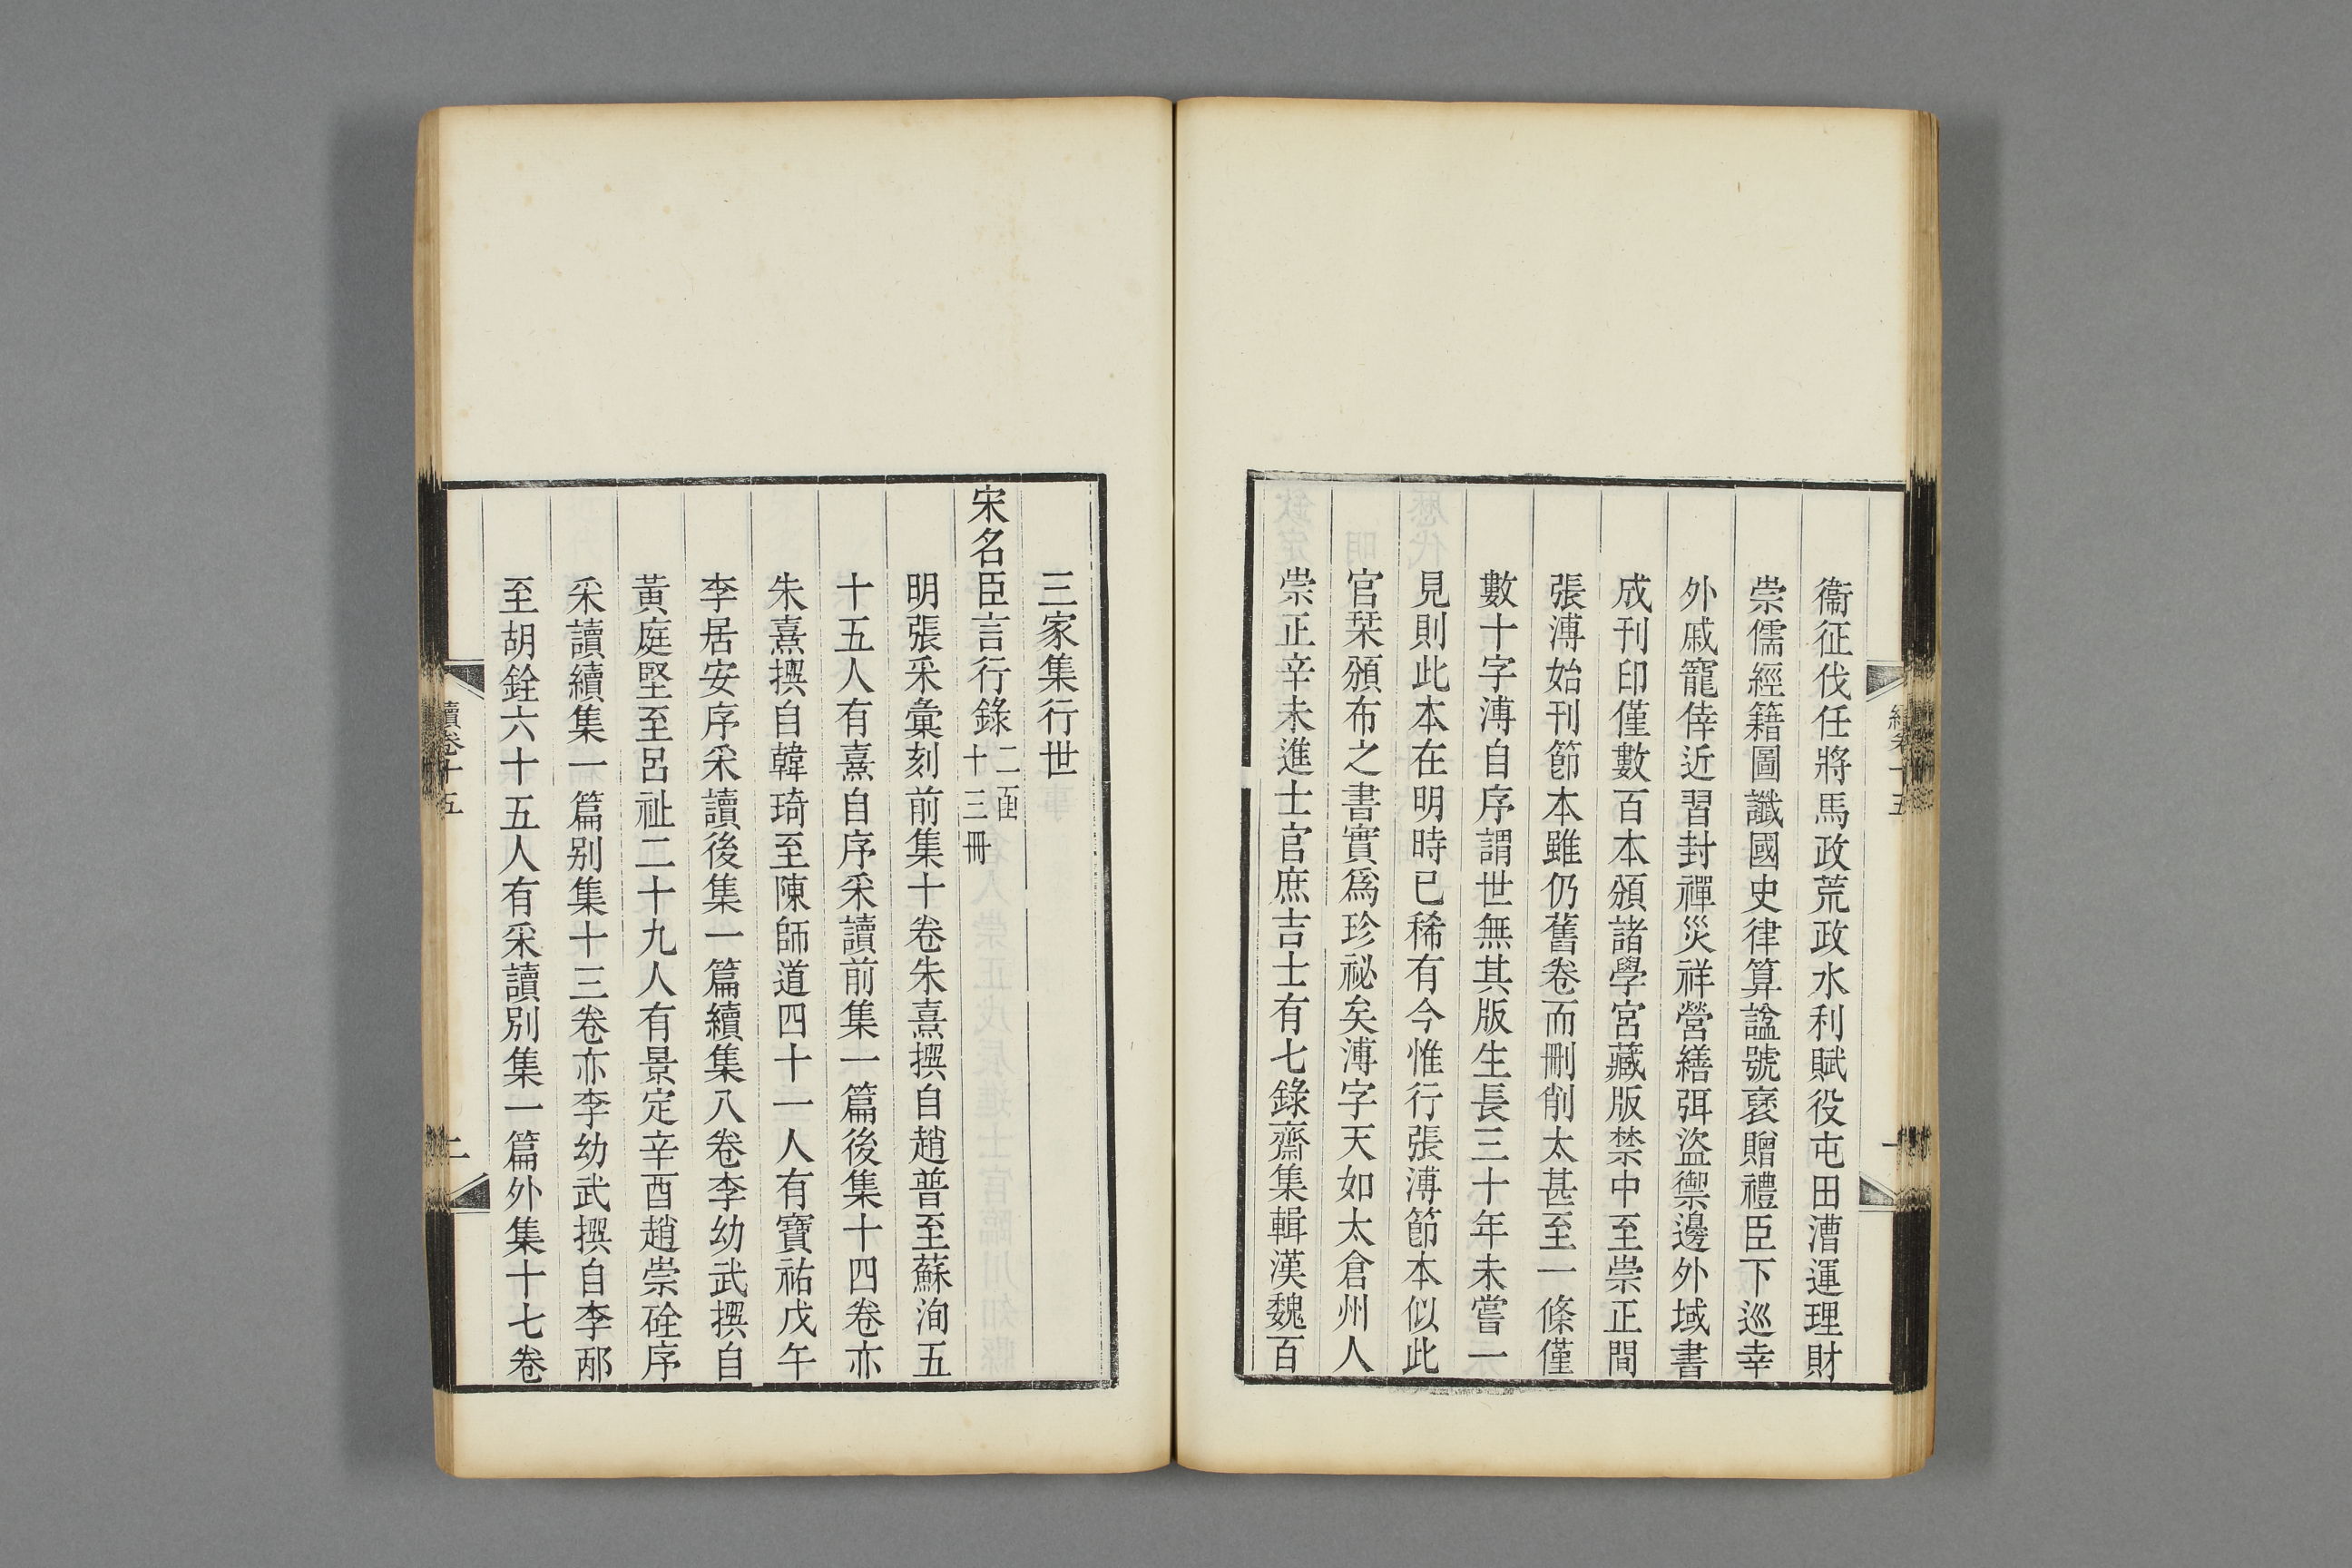 衞征伐任將馬政荒政水利賦役屯田漕運理財
崇儒經籍圖讖國史律算諡號襃贈禮臣下巡幸
外戚寵倖近習封禪災祥營繕弭盜禦邊外域書
成刊印僅數百本頒諸學宮藏版禁中至崇正間
張溥始刊節本雖仍舊卷而刪削太甚至一條僅
數十字溥自序謂世無其版生長三十年未嘗一
見則此本在明時已稀有今惟行張溥節本似此
官棻頒布之書實爲珍祕矣溥字天如太倉州人
崇正辛未進士官庶吉士有七錄齋集輯漢魏百
三家集行世
宋名臣言行錄二函十三冊
明張采彙刻前集十卷朱熹撰自趙普至蘇洵五
十五人有熹自序采讀前集一篇後集十四卷亦
朱熹撰自韓琦至陳師道四十一人有寶祐戊午
李居安序采讀後集一篇續集八卷李幼武撰自
黃庭堅至呂祉二十九人有景定辛酉趙崇硂序
采讀續集一篇别集十三卷亦李幼武撰自李邴
至胡銓六十五人有采讀別集一篇外集十七卷
續卷十五
二